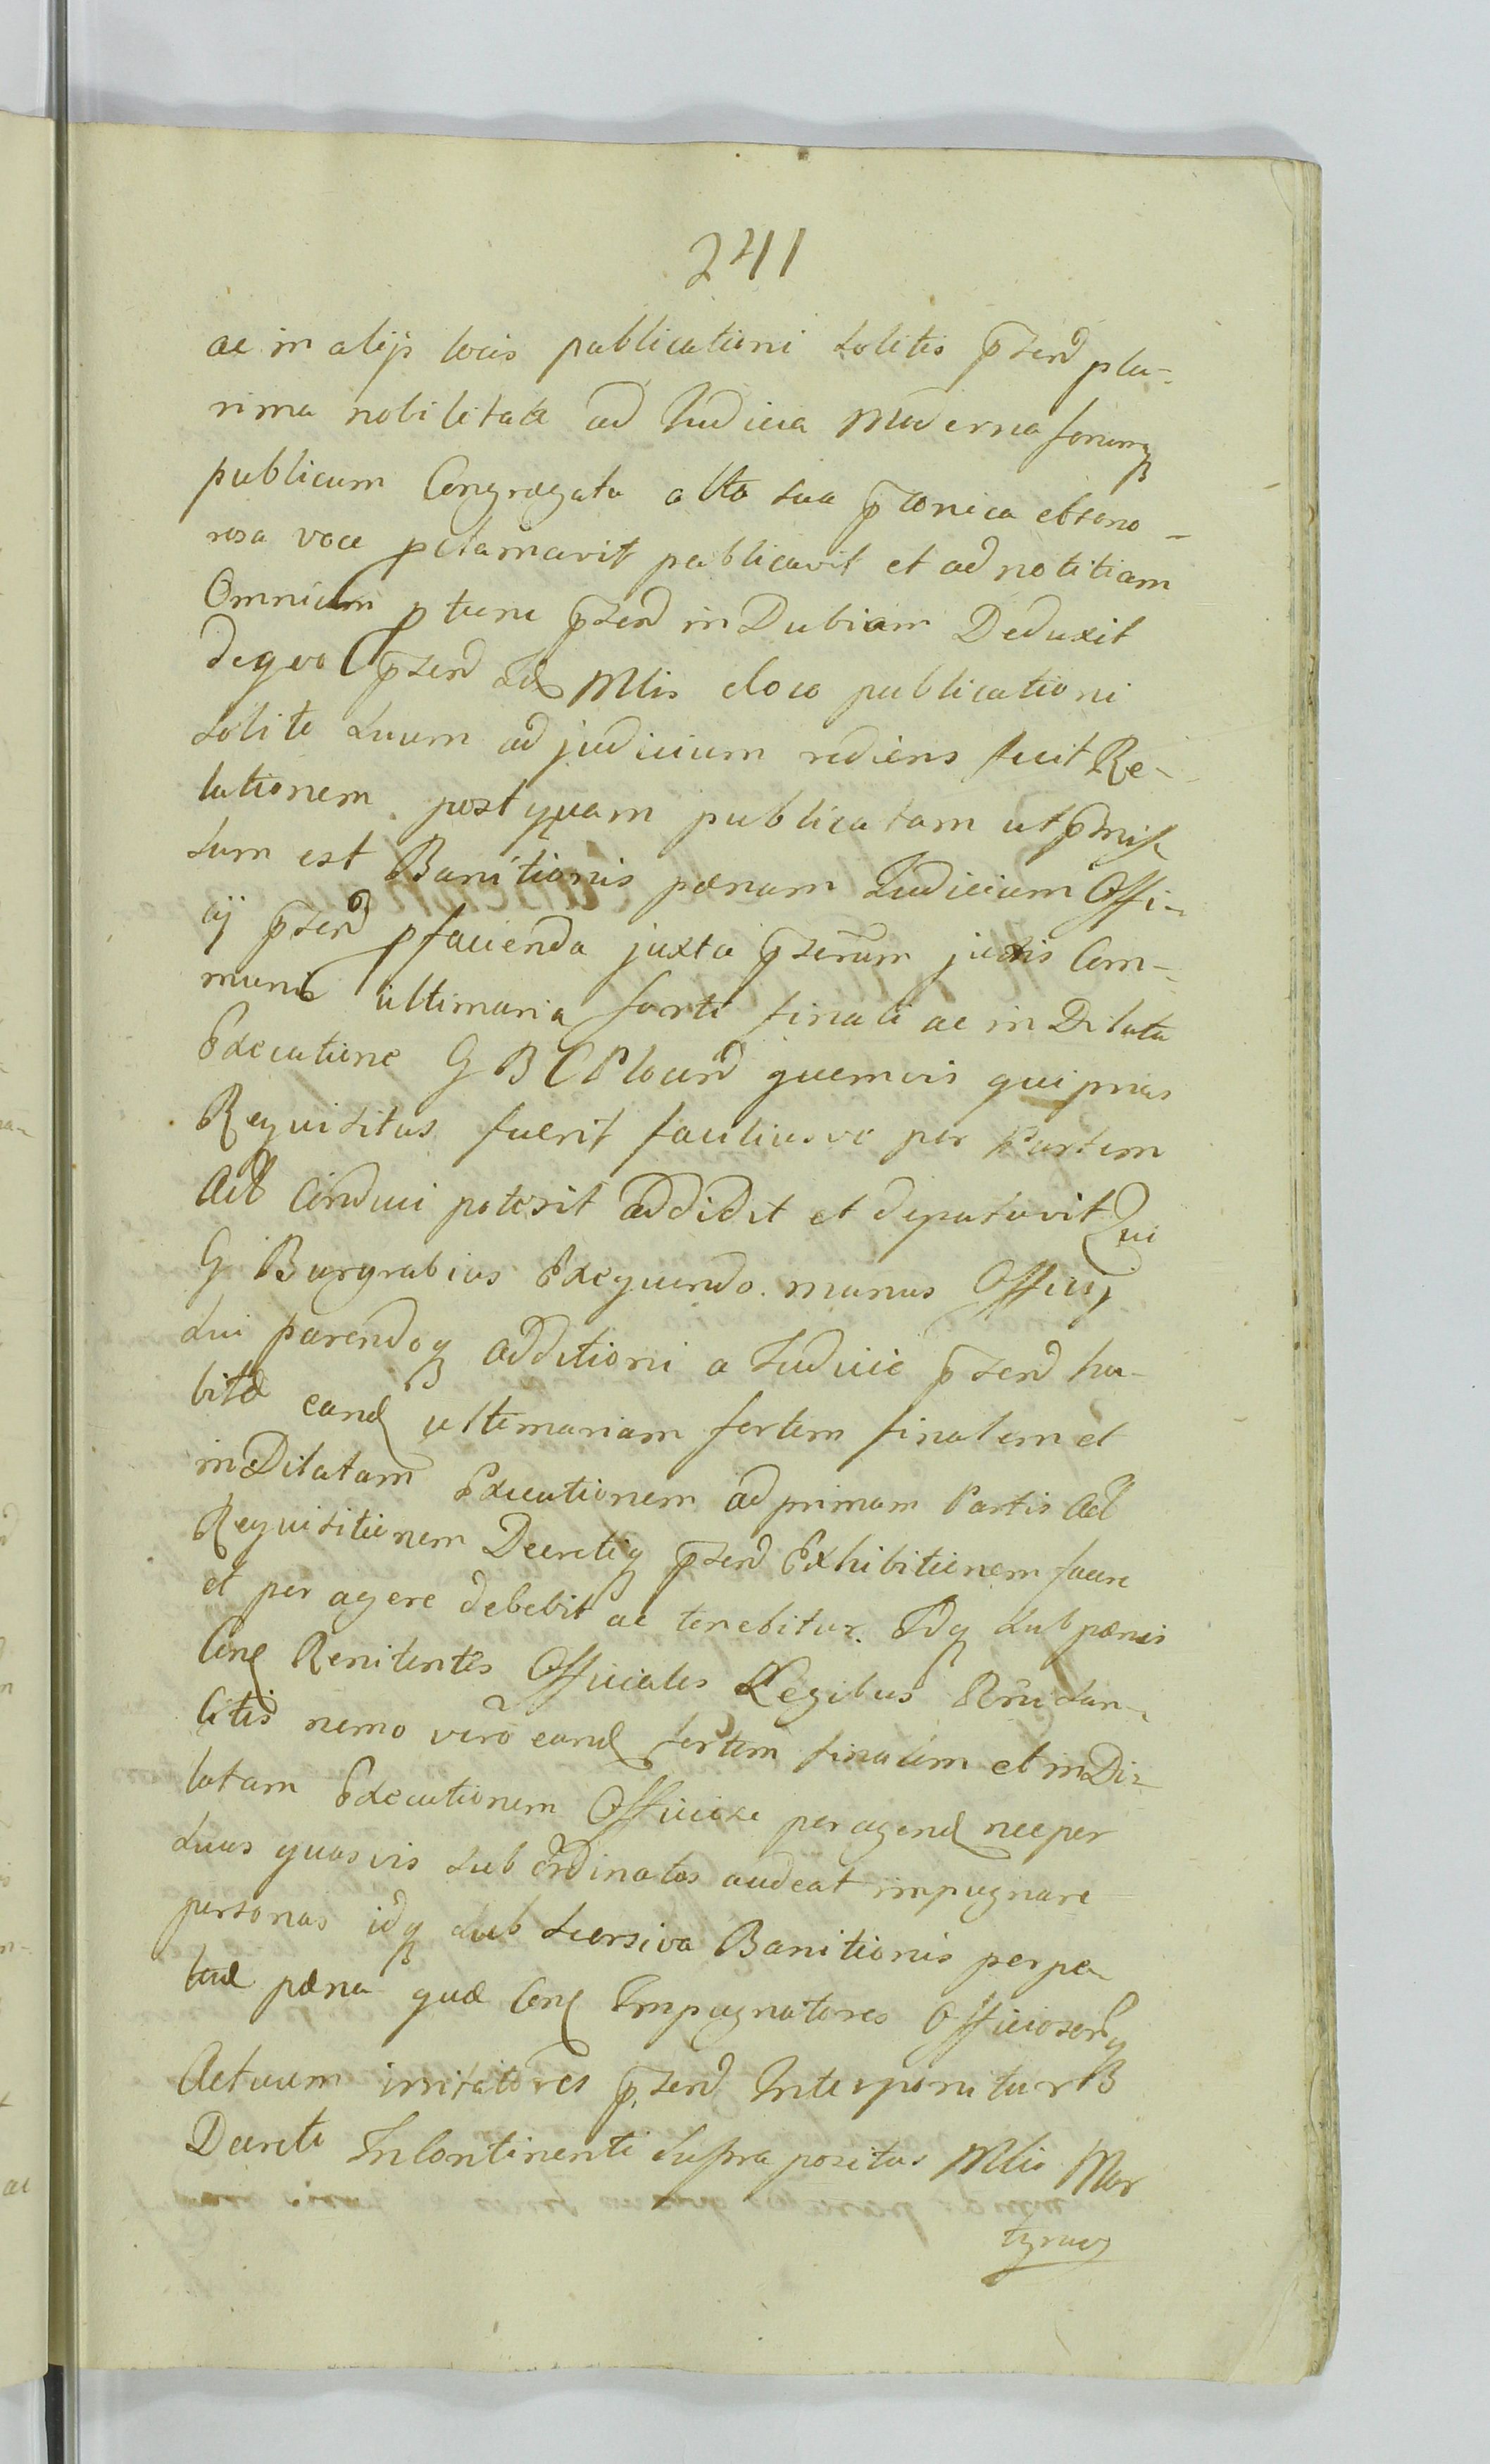 241
ac in alijs locis publicationi solitis p̄send plu-
rima nobilitate ad Judicia Moderna forumq
publicum Congregata alta sua p̄conica et sono-
rosa voce pclamavit publicavit et ad notitiam
Omnium p tunc p̄send in Dubiam Deduxit
de quo p̄send Mlis eloco publicationi
solito suum ad judicium rediens fecit Re-
lationem postquam publicatam ut p̄mis
sum est Banitionis pænam Judicium Offi-
cij p̄send p facienda juxta p̄sensum juris Com-
munis ultimaria forti finali ac in Dilata
Executione G B C P locand quemvis qui prius
Requisitus fuerit faciliusve per Partem
Act Conduci poterit addidit et deputavit Qui
G Burgrabius Exequendo munus Officij
sui parendoq additioni a Judicio p̄send ha-
bitæ eand ultimariam fortem finalem et
in Dilatam Executionem ad primam Partis Act
Requisitionem Decretiq p̄send Exhibitionem facere
et per agere debebit ac tenebitur. Idq sub pænis
Con Renitentes Officiales Legibus Rni San-
citis nemo vero eand fortem finalem et in Di-
latam Executionem Officiose peragend nec per
suas quasvis sub Ordinatas audeat impugnare
personas idq sub scersiva Banitionis perpe
tuæ pæna quæ Con Impugnatores Officiosorq
Actuum irritatores p̄send Interponitur
Decreti In Continenti supra positus Mlis Mar